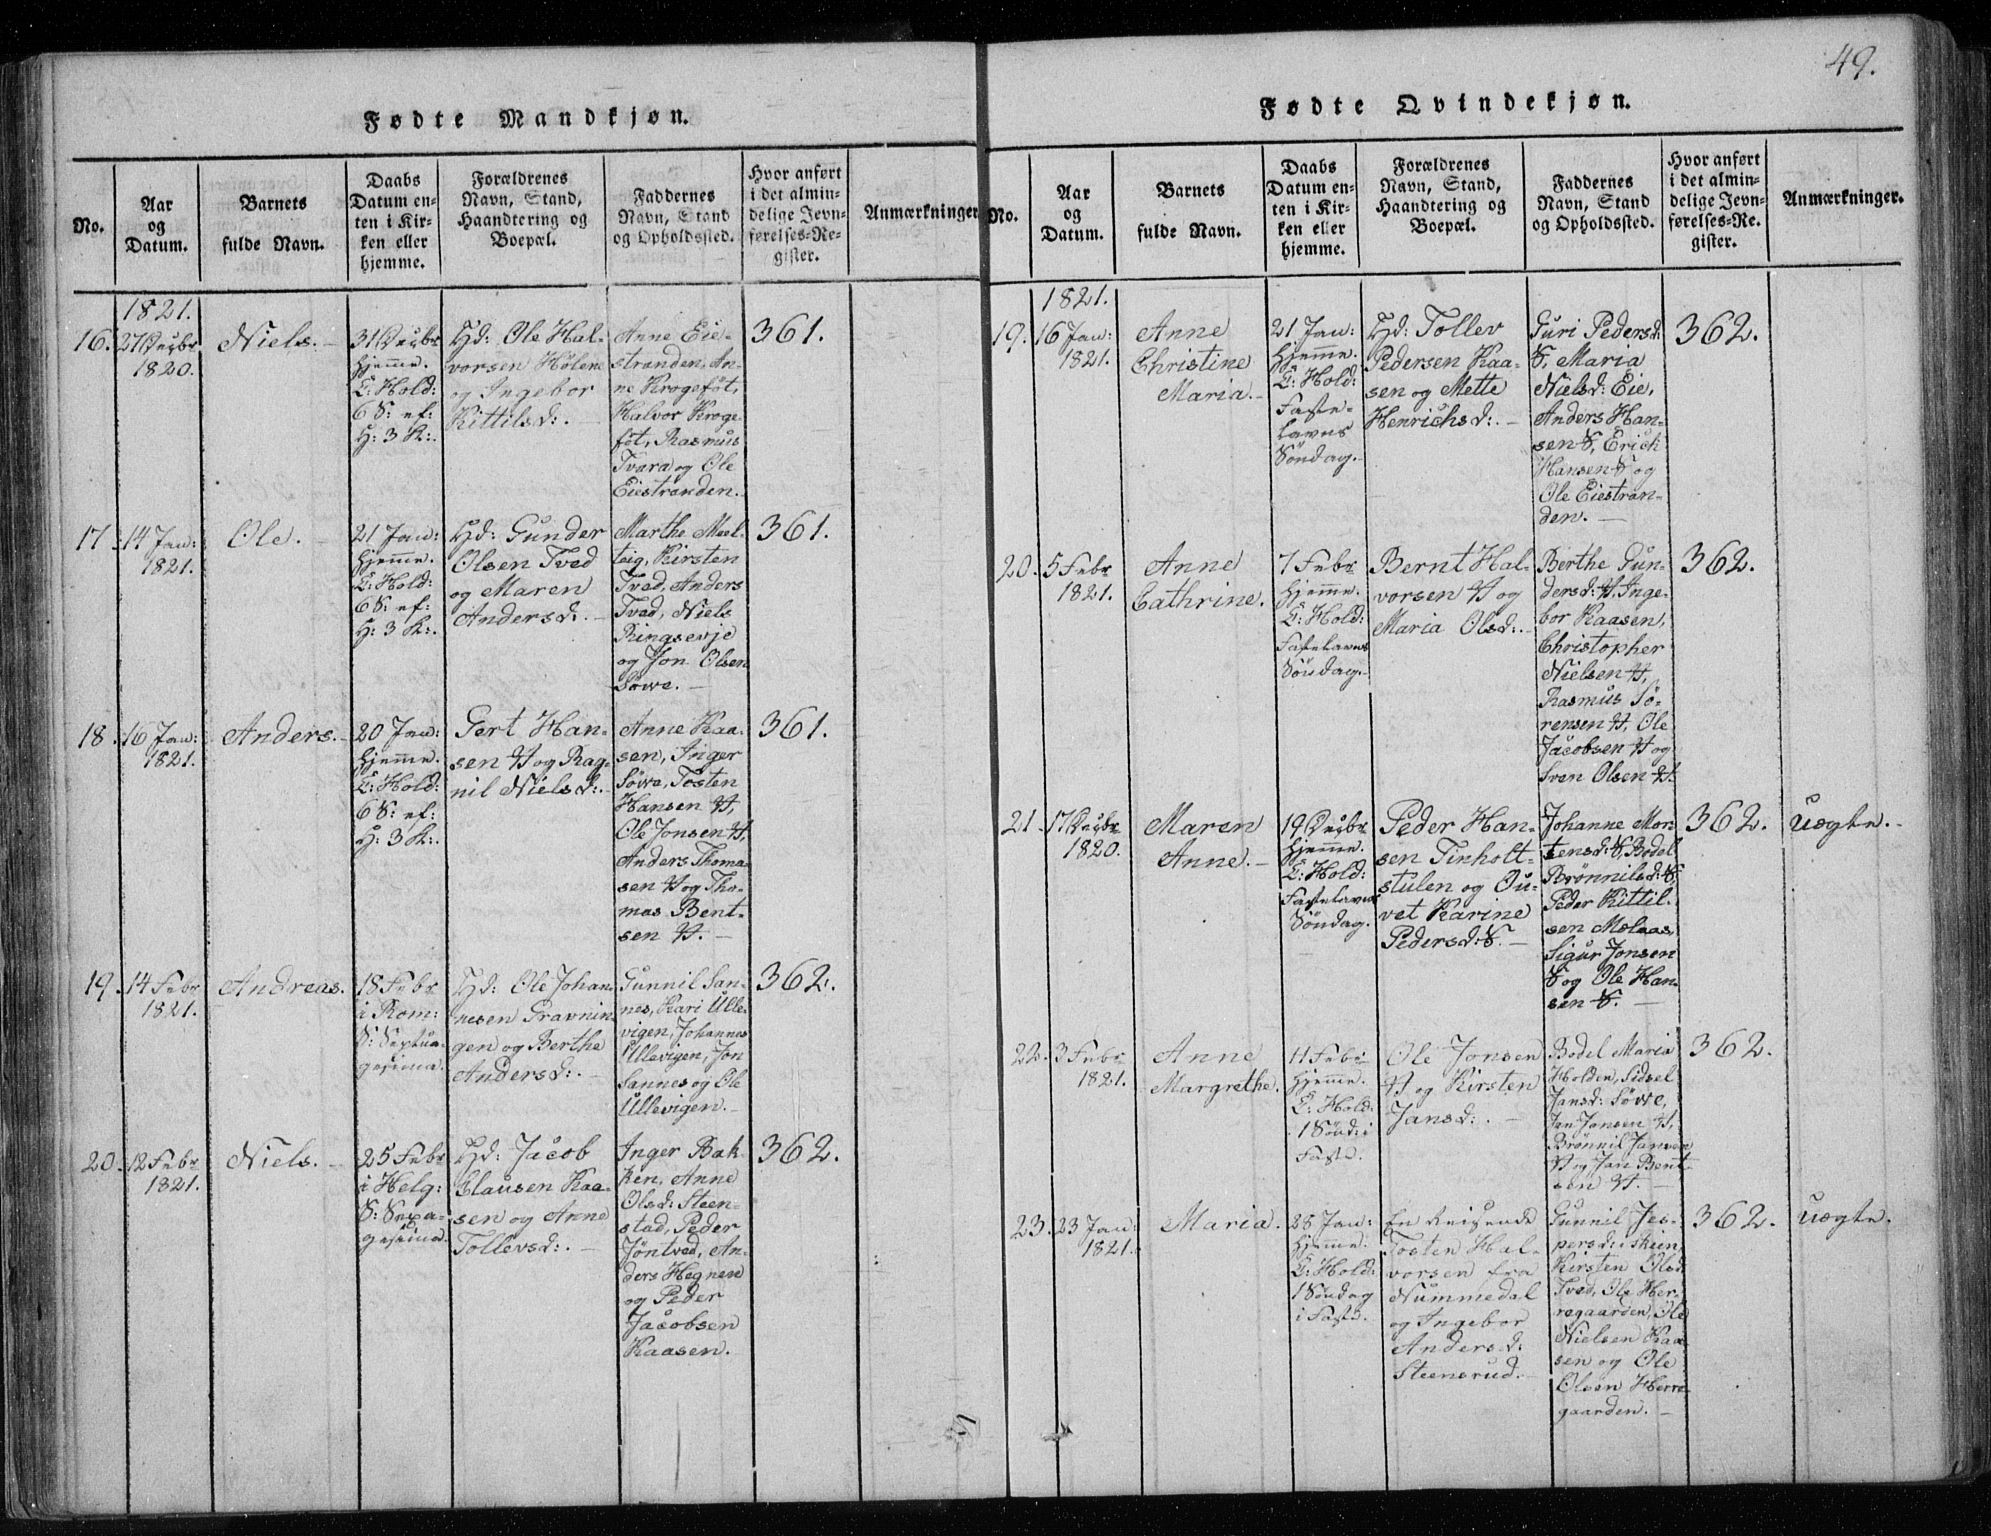 49.
Fødte Mandkjøn.
No.
Aar
og
Datum.
Barnets
fulde Navn.
Daabs
Datum en-
ten i Kir-
ken eller
hjemme.
Forældrenes
Navn, Stand,
Haandtering og
Boepæl.
Faddernes
Navn, Stand
og Opholdssted.
Hvor anført
i det almin-
delige Jevn-
førelses-Re-
gister.
Anmærkninger
1821.
16.
27 Decbr
1820.
Niels.
31 Decbr
hjemme.
E: Hold:
6 S: ef:
H: 3 K:.
Gd: Ole Hal-
vorsen Hølene
og Ingebor
Kittilsd:.
Anne Eie-
stranden, An-
ne Krogeføt,
Halvor Kroge-
føt, Rasmus
Tvara og Ole
Eiestranden.
361.
17.
14 Jan:
1821.
Ole.
21 Jan:
hjemme.
E: Hold:
6 S: ef:
H: 3 K:.
Gd: Gunder
Olsen Tved
og Maren
Andersd:.
Marthe Meel-
teig, Kirsten
Tved, Anders
Tved, Niels
Ringsevje
og Jon Olsen
Søwe.
361.
18.
16 Jan:
1821.
Anders.
20 Jan:
hjemme.
E: Hold:
6 S: ef:
H: 3 K:.
Gert Han-
sen H og Rag-
nil Nielsd:.
Anne Kaa-
sen, Inger
Søwe, Tosten
Hansen H,
Ole Jonsen H,
Anders Thoma-
sen H og Tho-
mas Bent-
sen H.
361.
19.
14 Febr
1821.
Andreas.
18 Febr
i Rom:
S: Septua-
gesima.
Gd: Ole Johan-
nesen Gravnin
gen og Berthe
Andersd:.
Gunnil San-
nes, Kari Ulle-
vigen, Johannes
Ullevigen, Jon
Sannes og Ole
Ullevigen.
362.
20.
12 Febr
1821.
Niels.
25 Febr
i Helg:
S: Sexa-
gesima.
Gd: Jacob
Clausen Kaa-
sen og Anne
Tollevsd:.
Inger Bak-
ken, Anne
Olsd: Steen-
stad, Peder
Jøntved, An-
ders Hegnene
og Peder
Jacobsen
Kaasen.
362.
Fødte Qvindekjøn.
No.
Aar
og
Datum.
Barnets
fulde Navn.
Daabs
Datum en-
ten i Kir-
ken eller
hjemme.
Forældrenes
Navn, Stand,
Haandtering og
Boepæl.
Faddernes
Navn, Stand
og Opholdssted.
Hvor anført
i det almin-
delige Jevn-
førelses-Re-
gister.
Anmærkninger.
1821.
19.
16 Jan:
1821.
Anne
Christine
Maria.
21 Jan:
hjemme.
E: Hold:
Faste-
lavns
Søndag.
Gd: Tollev
Pedersen Kaa-
sen og Mette
Henrichsd:.
Guri Pedersd:
S, Maria
Nielsd: Eie,
Anders Han-
sen S, Erich
Hansen S og
Ole Eiestran-
den.
362.
20.
5 Febr
1821.
Anne
Cathrine.
7 Febr
hjemme.
E: Hold:
Fastelavns
Søndag.
Bernt Hal-
vorsen H og
Maria Olsd:.
Berthe Gun-
dersd: H, Inge-
bor Kaasen,
Christopher
Nielsen H,
Rasmus Sø-
rensen H, Ole
Jacobsen H og
Sven Olsen H.
362.
21.
17 Decbr
1820.
Maren
Anne.
19 Decbr
hjemme.
E: Hold:
Fastelavns
Søndag.
Peder Han-
sen Tinholt-
stulen og Ou-
vet Karine
Pedersd: S.
Johanne Mor-
tensd: S, Bodel
Brønnilsd: S,
Peder Kittil-
sen Melaas,
Sigur Jonsen
S og Ole Han-
sen S.
362.
uægte.
22.
3 Febr
1821.
Anne
Margrethe.
11 Febr
hjemme.
E: Hold:
1 Sønd: i
Faste.
Ole Jonsen
H og Kirsten
Jansd:.
Bodel Maria
Holden, Sidsel
Jansd: Søwe,
Jan Jansen H,
Brønnil Jansen
H og Jan Bent-
sen H.
362.
23.
23 Jan:
1821.
Maria.
28 Jan:
hjemme:
E: Hold:
1 Søndag
i Faste.
En Reisende
Tosten Hal-
vorsen fra
Nummedal
og Ingebor
Andersd:
Steensrud.
Gunnil Jes-
persd: i Skien,
Kirsten Olsd:
Tved, Ole Her-
regaarden, Ole
Nielsen Kaa-
sen og Ole
Olsen Herre-
gaarden.
362.
uægte.